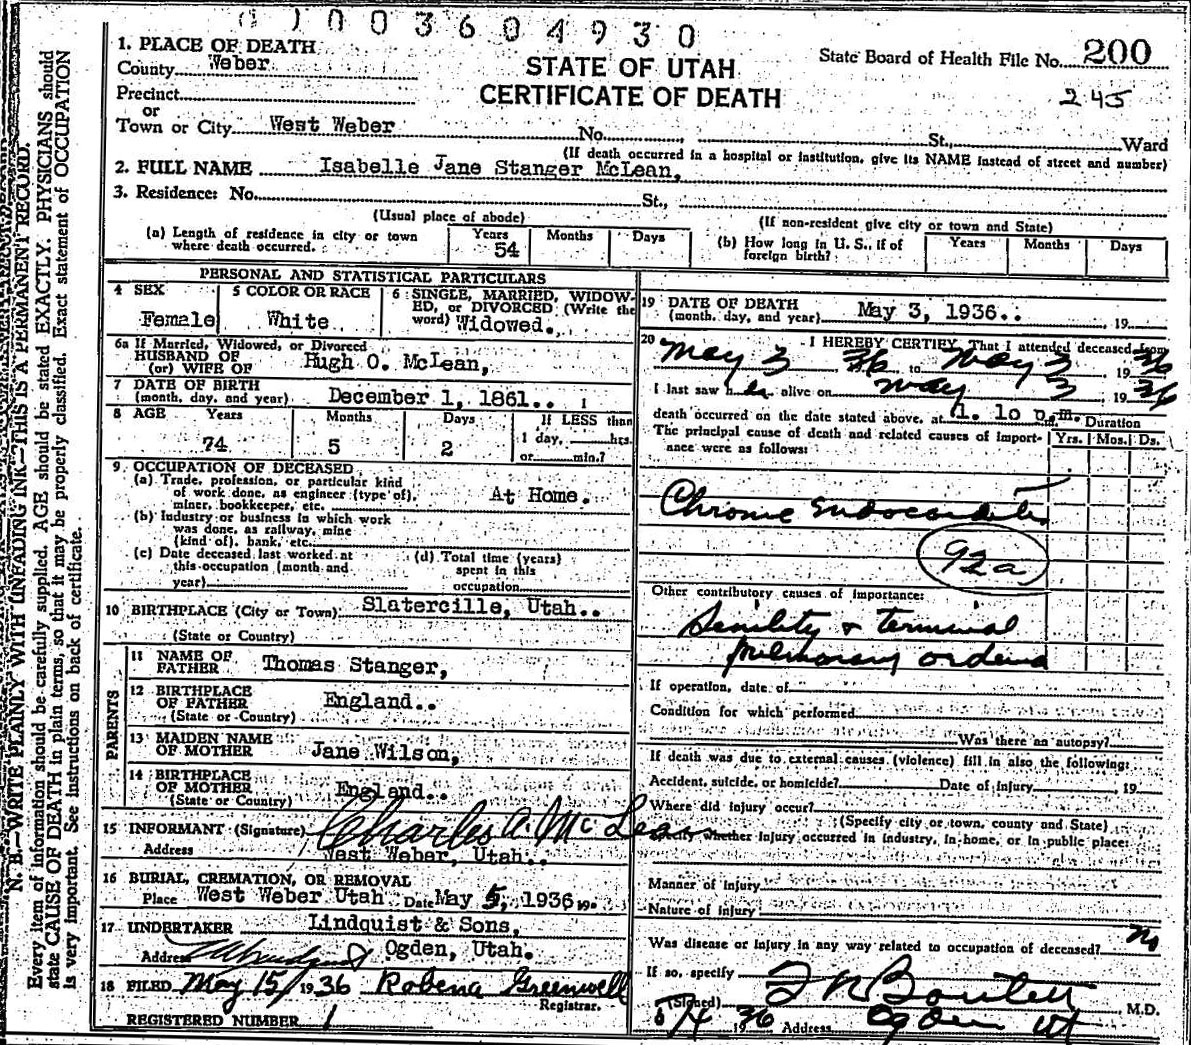 0 1 0 0 3 6 0 4 9 3 0
1. PLACE OF DEATH
County Weber
Precinct
or
Town or City West Weber No. St., Ward
STATE OF UTAH
CERTIFICATE OF DEATH
State Board of Health File No. 200
245
(If death occurred in a hospital or institution, give its NAME instead of street and number)
2. FULL NAME Isabelle Jane Stanger McLean,
3. Residence: No. St.,
(Usual place of abode) (If non-resident give city or town and State)
(a) Length of residence in city or town where death occurred. Years 54 Months Days
(b) How long in U. S., if of foreign birth? Years Months Days
PERSONAL AND STATISTICAL PARTICULARS
4 SEX Female
5 COLOR OR RACE White
6 SINGLE, MARRIED, WIDOW-
ED, or DIVORCED (Write the
word) Widowed.
6a If Married, Widowed, or Divorced
HUSBAND OF
(or) WIFE OF Hugh O. McLean,
7 DATE OF BIRTH
(month, day, and year) December 1, 1861..
8 AGE Years Months Days If LESS than
74 5 2 1 day, hrs.
or min.?
9 OCCUPATION OF DECEASED
(a) Trade, profession, or particular kind
of work done, as engineer (type of),
miner, bookkeeper, etc. At Home.
(b) Industry or business in which work
was done, as railway, mine
(kind of), bank, etc.
(c) Date deceased last worked at
this occupation (month and
year)
(d) Total time (years)
spent in this
occupation
10 BIRTHPLACE (City or Town) Slatercille, Utah..
(State or Country)
PARENTS
11 NAME OF
FATHER Thomas Stanger,
12 BIRTHPLACE
OF FATHER England..
(State or Country)
13 MAIDEN NAME
OF MOTHER Jane Wilson,
14 BIRTHPLACE
OF MOTHER England..
(State or Country)
15 INFORMANT (Signature) Charles A. McLean
Address West Weber, Utah..
16 BURIAL, CREMATION, OR REMOVAL
Place West Weber Utah Date May 5, 1936 19
17 UNDERTAKER Lindquist & Sons,
Address Ogden, Utah.
18 FILED May 15, 1936 Robena Greenwell
Registrar.
REGISTERED NUMBER 1
19 DATE OF DEATH
(month, day, and year) May 3, 1936.. , 19
20 I HEREBY CERTIFY, That I attended deceased from
May 3 36 to May 3 1936
I last saw her alive on May 3 1936
death occurred on the date stated above, at 1.10 p.m. Duration
The principal cause of death and related causes of import- Yrs. Mos. Ds.
ance were as follows:
Chronic Endocarditis
92a
Other contributory causes of importance:
Senility & terminal
pulmonary oedema
If operation, date of
Condition for which performed
Was there an autopsy?
If death was due to external causes (violence) fill in also the following:
Accident, suicide, or homicide? Date of injury , 19
Where did injury occur?
(Specify city or town, county and State)
Specify whether injury occurred in industry, in home, or in public place:
Manner of injury
Nature of injury
Was disease or injury in any way related to occupation of deceased? no
If so, specify
(Signed) , M.D.
1936 Address Ogden Ut
N. B.—WRITE PLAINLY WITH UNFADING INK—THIS IS A PERMANENT RECORD.
Every item of information should be carefully supplied. AGE should be stated EXACTLY. PHYSICIANS should
state CAUSE OF DEATH in plain terms, so that it may be properly classified. Exact statement of OCCUPATION
is very important. See instructions on back of certificate.